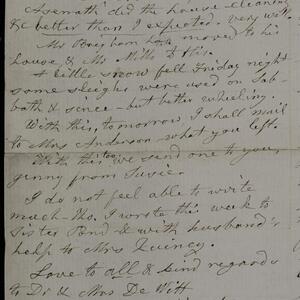 Asenath' did the house-cleaning
&c better than I expected - very well.
Mr Brigham has moved to his
house, & Mr Mills to his.
A little snow fell Friday night
some sleighs were used on Sab-
bath & since - but better wheeling.
With this, tomorrow I shall mail
to Mrs Anderson what you left.
With this too we send one to your
genny from Susie.
I do not feel able to write
much - tho. I wrote this week to
Sister Pond & with husband's
help to Mrs Quincy.
Love to all & kind regards
to Dr & Mrs De Witt